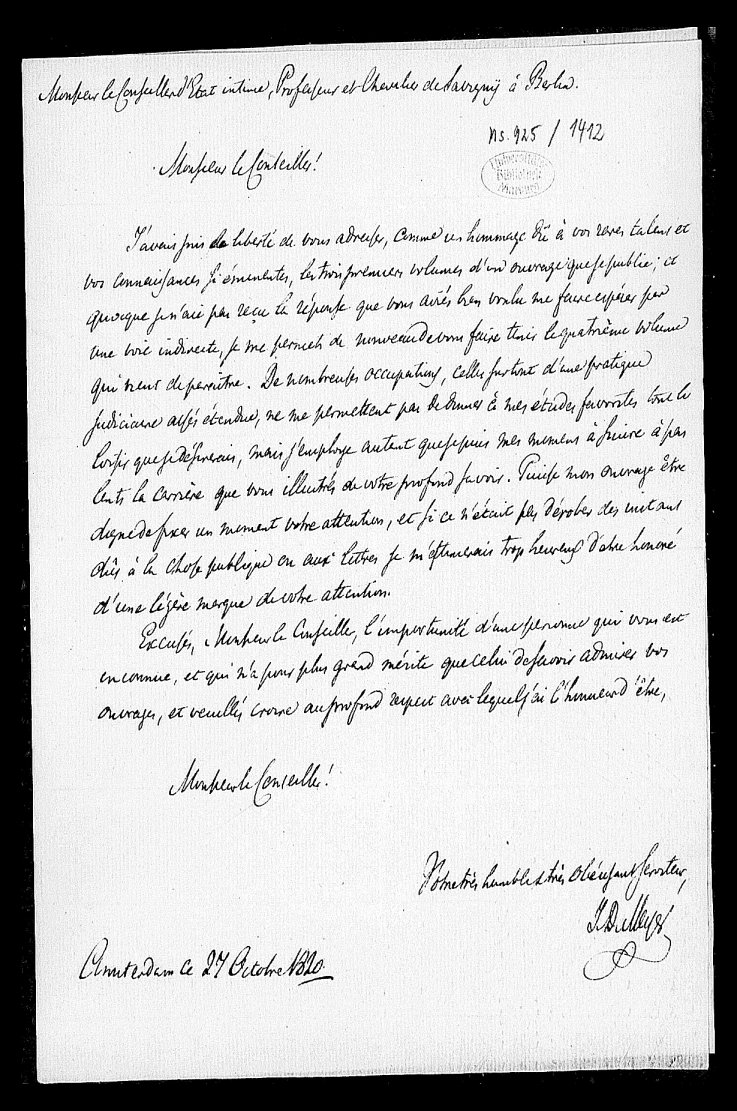 Monsieur le Conseiller d'Etat intime, Professeur et Chevalier de Savigny à Berlin.
Ms. 925 / 1412
Monsieur le Conseiller!
Universitäts
Bibliothek
Marburg
J'avais pris la liberté de vous adresser, comme un hommage dû à vos rares talens et
vos connaissances si éminentes, les trois premiers volumes d'un ouvrage que je publie; et
quoique je n'aie pas reçu la réponse que vous aviés bien voulu me faire espérer par
une voie indirecte, je me permets de nouveau de vous faire tenir le quatrième volume
qui vient de paroître. De nombreuses occupations, celles surtout d'une pratique
judiciaire assés étendue, ne me permettent pas de donner à mes études favorites tout le
loisir que je désirerais, mais j'employe autant que je puis mes momens à suivre à pas
lents la carrière que vous illustrés de votre profond savoir. Puisse mon ouvrage être
digne de fixer un moment votre attention, et si ce n'était pas dérober des instans
dûs à la chose publique ou aux lettres je m'estimerais trop heureux d'être honoré
d'une légère marque de votre attention.
Excusés, Monsieur le Conseiller, l'importunité d'une personne qui vous est
inconnue, et qui n'a pour plus grand mérite que celui de savoir admirer vos
ouvrages, et veuillés croire au profond respect avec lequel j'ai l'honneur d'être,
Monsieur le Conseiller!
Votre très humble & très obéissant Serviteur,
J. D. Meyer
Amsterdam ce 27 Octobre 1820.